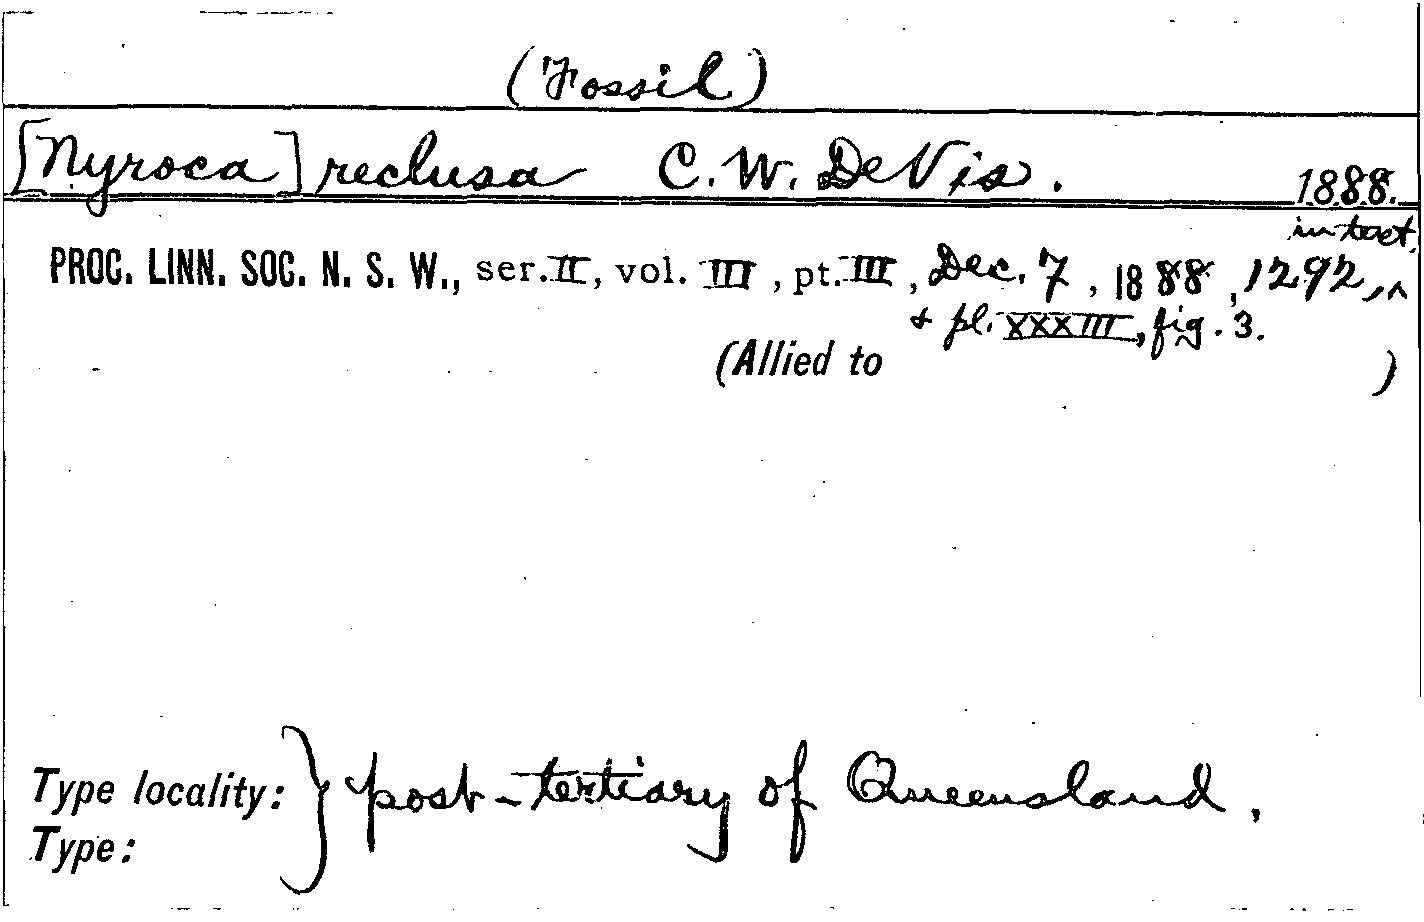 (Fossil)
[Nyroca] reclusa C. W. De Vis. 1888.
in text,
PROC. LINN. SOC. N. S. W., ser. II, vol. III, pt. III, Dec. 7, 1888, 1292, ^
+ pl. XXXIII, fig. 3.
(Allied to )
Type locality: } post-tertiary of Queensland.
Type: